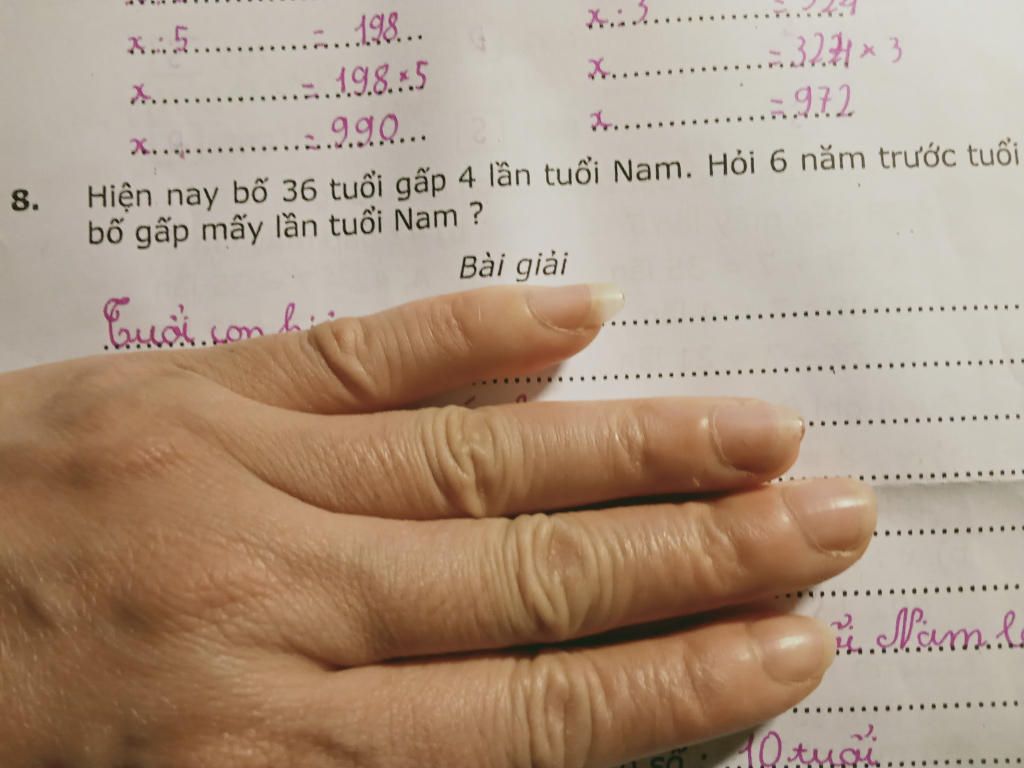 x : 5 = 198
x : 3
x = 198 × 5
x = 324 × 3
x = 990
x = 972
8. Hiện nay bố 36 tuổi gấp 4 lần tuổi Nam. Hỏi 6 năm trước tuổi
bố gấp mấy lần tuổi Nam ?
Bài giải
Tuổi con
Nam
số : 10 tuổi